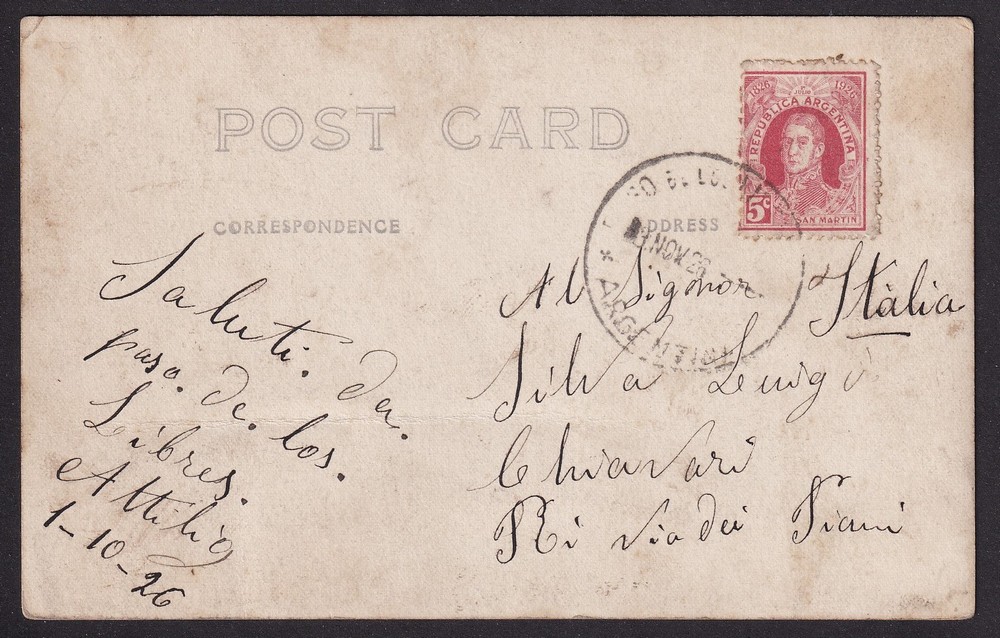 POST CARD
CORRESPONDENCE
ADDRESS
1826 1926
JULIO
REPUBLICA ARGENTINA
5c
SAN MARTIN
NOV 26
ARGENTINA
Saluti. da.
paso. de. los.
Libres.
Attilio
1-10-26
Al Signor Itàlia
Silva Luigi
Chiavari
Ri via dei